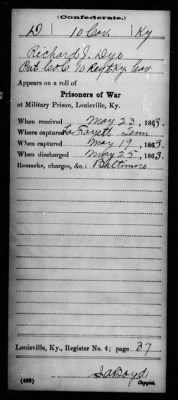 (Confederate.)
D 10 Cav. Ky
Richard J. Dye
Pvt Co C 10 Reg't Ky Cav
Appears on a roll of
Prisoners of War
at Military Prison, Louisville, Ky.
When received May 23, 1863.
Where captured La Fayett Tenn
When captured May 19, 1863.
When discharged May 25, 1863.
Remarks, charges, &c.: Baltimore
Louisville, Ky., Register No. 4; page 37
Boyd
(639) Copyist.